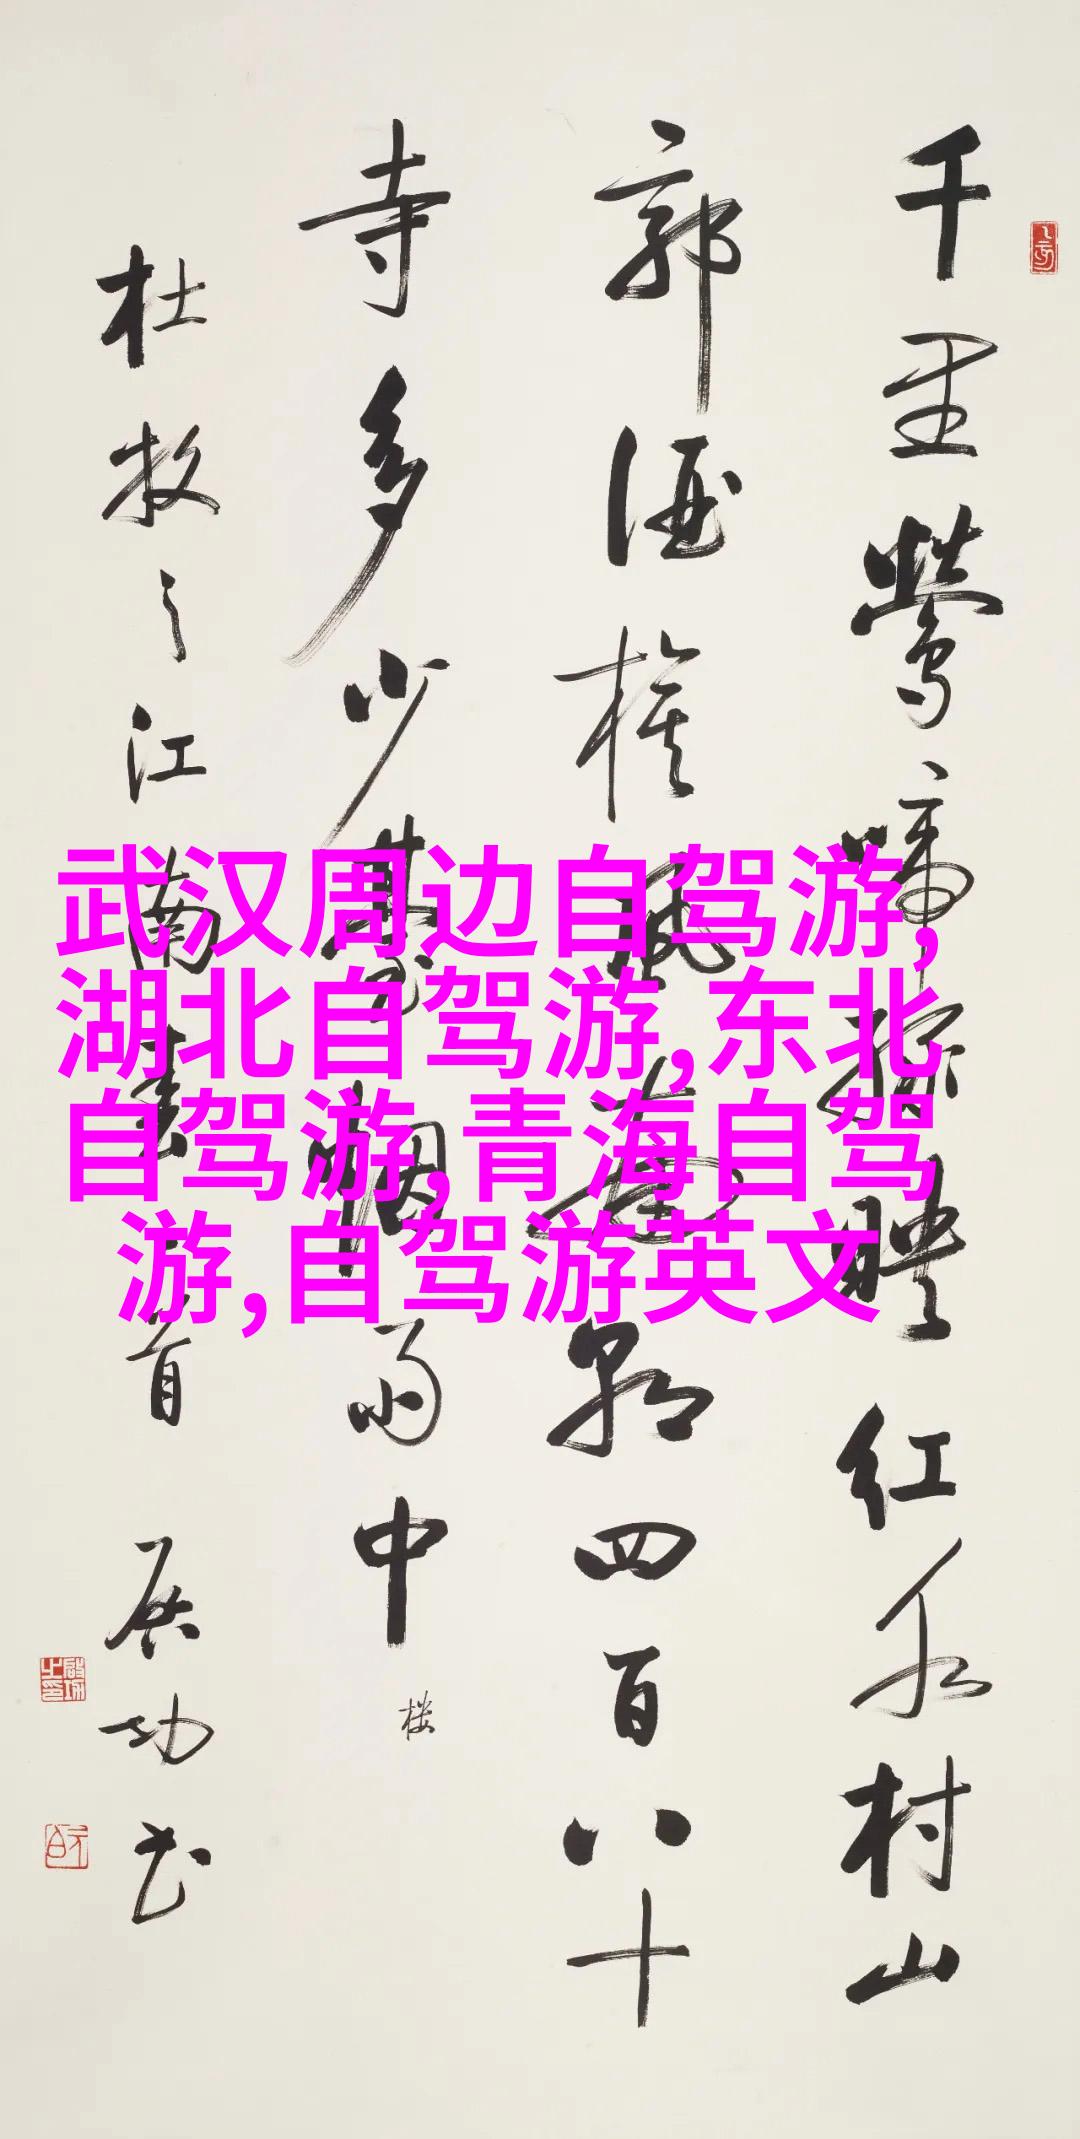 千里莺啼绿映红水村山
郭酒旗风南朝四百八十
寺多少楼台烟雨中
楼
杜牧之江南春一首 启功书
启功之印
武汉周边自驾游,
湖北自驾游,东北
自驾游,青海自驾
游,自驾游英文